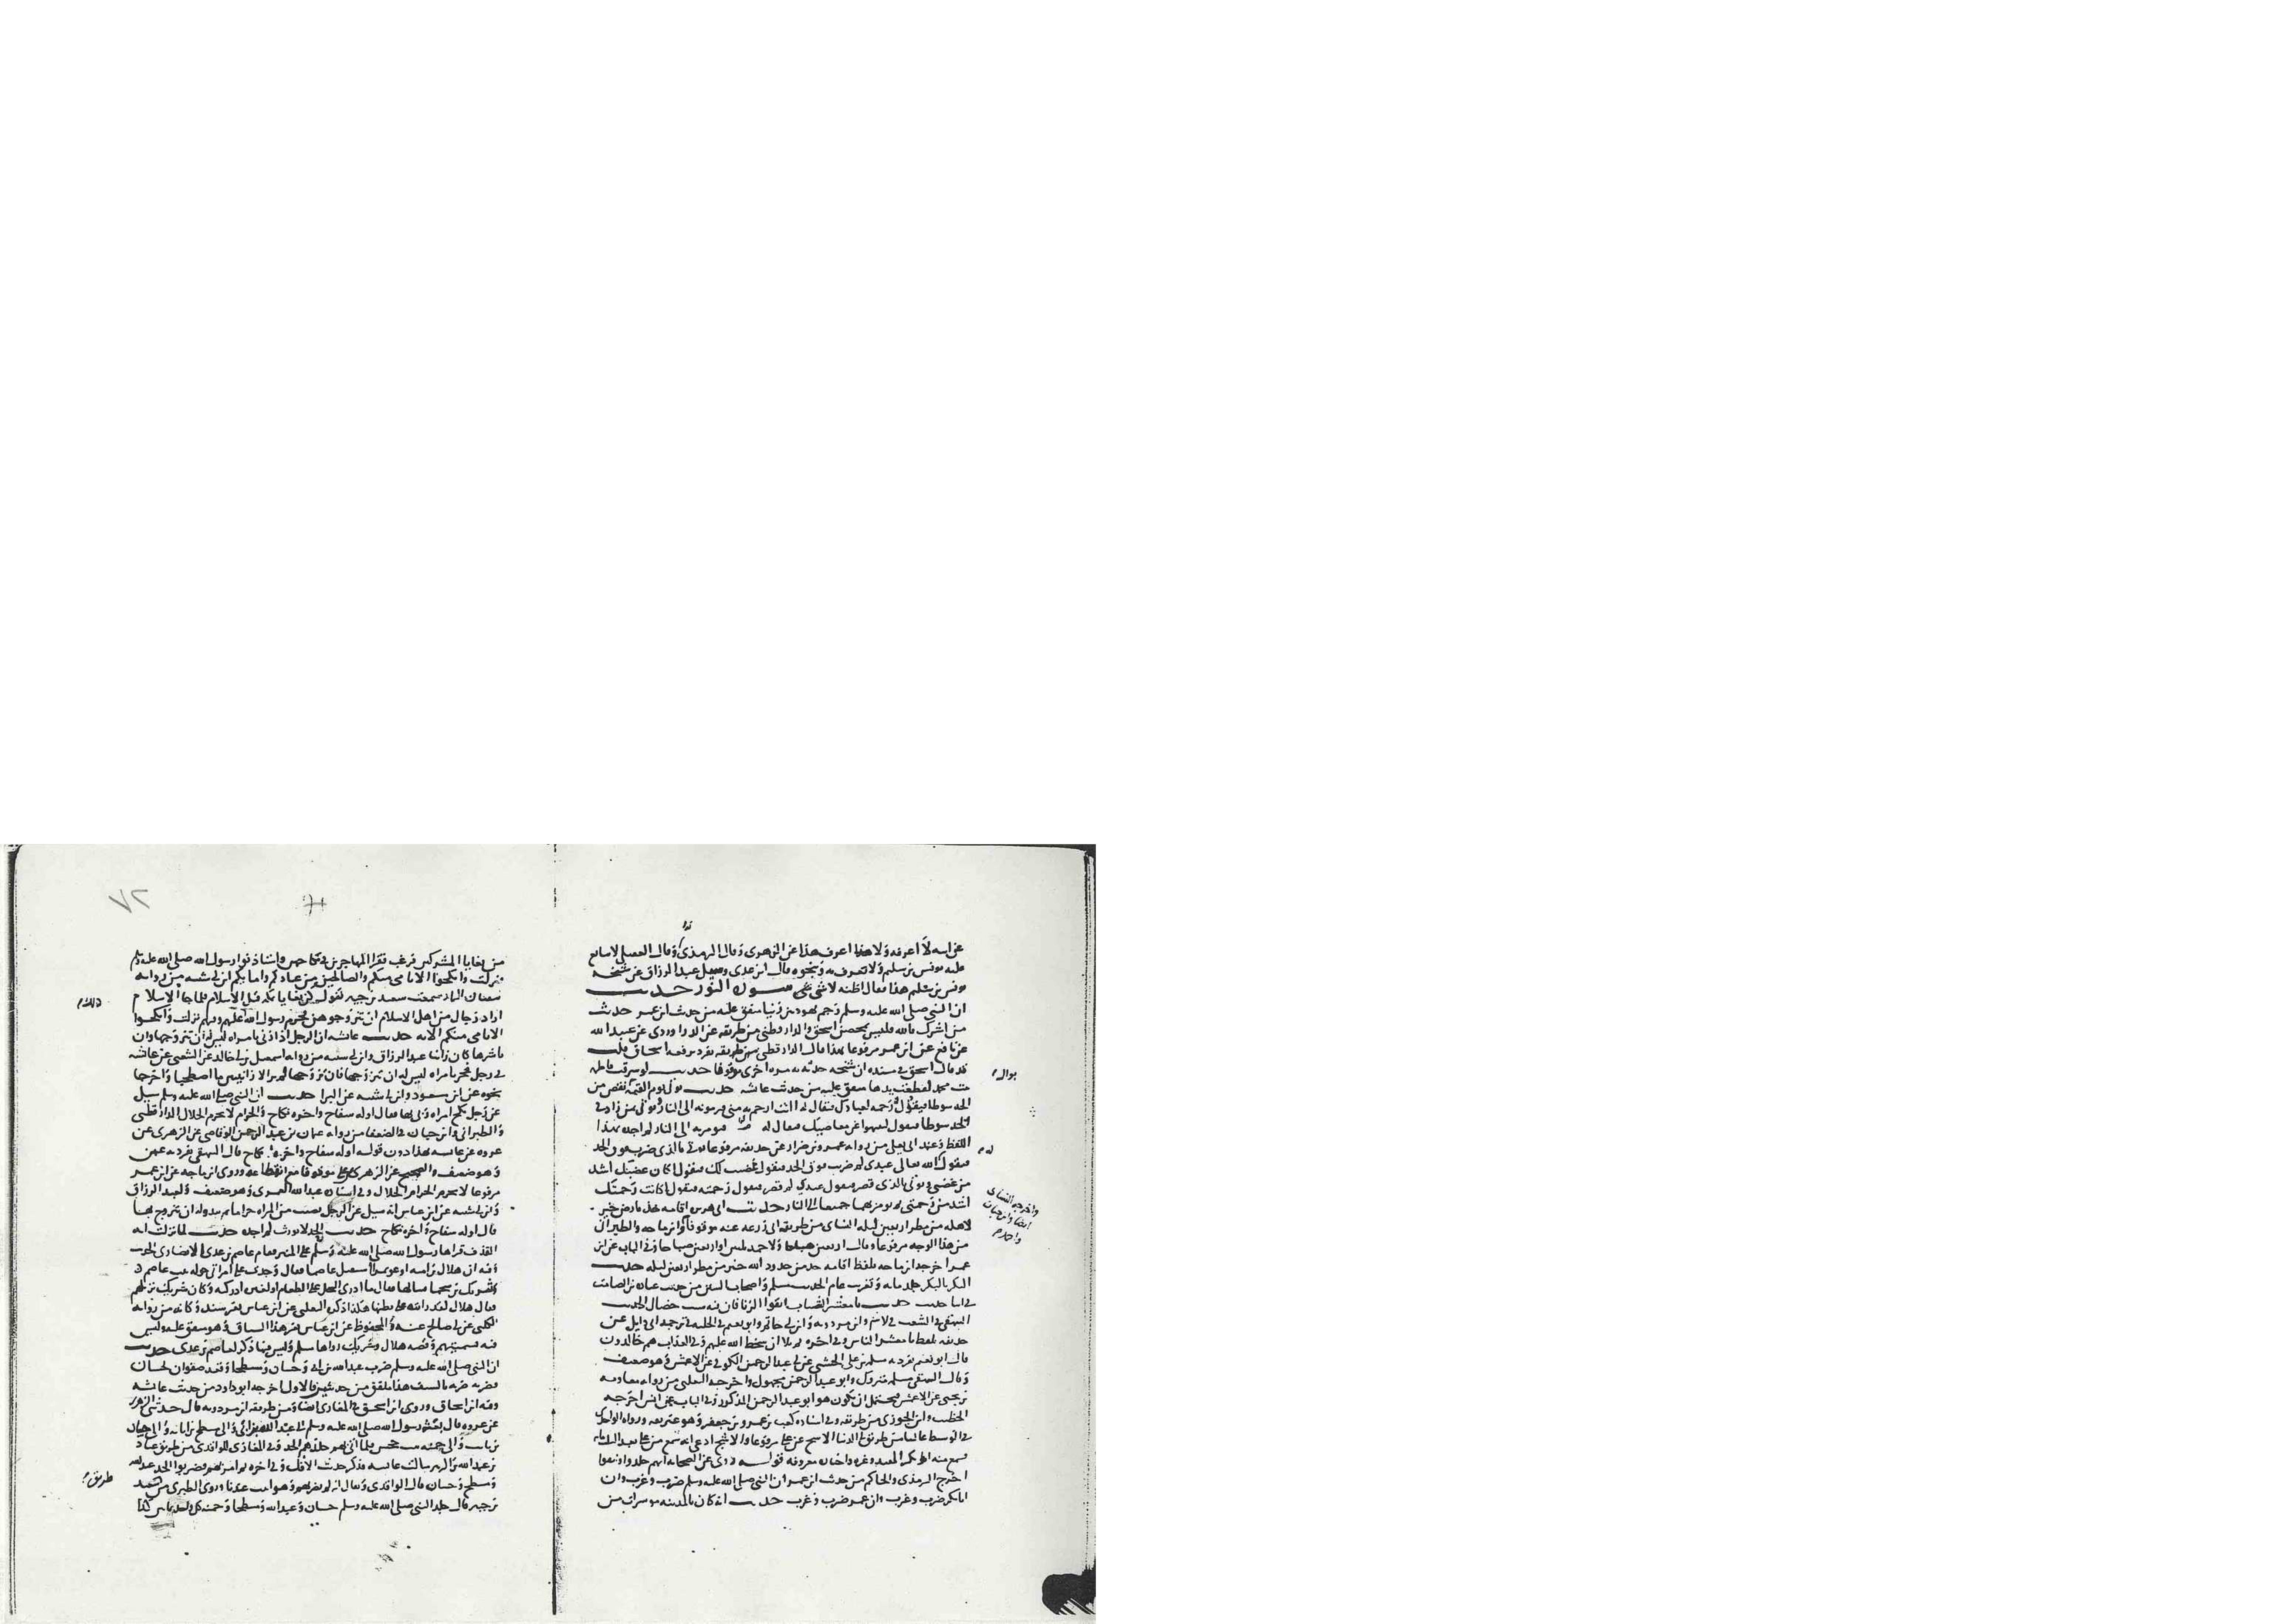 عن اسه لا اعرفه ولا هذا اعرف هذا عن الزهري وقال الترمذي وقال العقيلي لا يتابع
عليه يونس بن سليم ولا يعرف به وبنحوه قال ابن عدي وسيل عبد الرزاق عن شيخه
يونس بن سليم هذا فقال اظنه لا شي سورة النور حديث
ان النبي صلى الله عليه وسلم رجم يهوديين زنيا متفق عليه من حديث ابن عمر حديث
من اشرك بالله فليس بمحصن اسحق والدارقطني من طريقه عن الدراوردي عن عبيد الله
عن نافع عن ابن عمر مرفوعا بهذا قال الدارقطني تفرد برفعه اسحاق قلت
قد قال اسحق في مسنده ان شيخه حدثه به مرة اخرى موقوفا حديث لو سرقت فاطمة
بنت محمد لقطعت يدها متفق عليه من حديث عائشة حديث يوتى يوم القيمة بمن نقص من
الحد سوطا فيقول رحمة لعبادك فيقال له اانت ارحم به مني فيومر به الى النار ويوتى بمن زاد في
الحد سوطا فيقول لينتهوا عن معاصيك فيقال له فيومر به الى النار لم اجده بهذا
اللفظ وعند ابي يعلى من رواية عمرو بن ضرار عن حذيفة مرفوعا يوتى بالذي ضرب فوق الحد
فيقول الله تعالى عبدي لم ضربت فوق الحد فيقول غضبت لك فيقول اكان غضبك اشد
من غضبي ويوتى بالذي قصر فيقول عبدي لم قصرت فيقول رحمته فيقول اكانت رحمتك
اشد من رحمتي ثم يومر بهما جميعا الى النار حديث ابي هريرة اقامة حد بارض خير
لاهله من مطر اربعين ليلة النساي من طريق ابي زرعة عنه موقوفا وابن ماجه والطبراني
من هذا الوجه مرفوعا وقال اربعين صباحا ولاحمد ثلثين او اربعين صباحا وفي الباب عن ابن
عمر اخرجه ابن ماجه بلفظ اقامة حد من حدود الله خير من مطر اربعين ليلة حديث
البكر بالبكر جلد ماية وتغريب عام الحديث مسلم واصحاب السنن من حديث عبادة بن الصامت
في اثنا حديث حديث يا معشر الناس اتقوا الزنا فان فيه ست خصال الحديث
البيهقي في الشعب وابن مردويه وابن ابي حاتم وابو نعيم في الحلية في ترجمة ابي وايل عن
حذيفة بلفظ يا معشر الناس وفي اخره ثم تلا ان سخط الله عليهم وفي العذاب هم خالدون
قال ابو نعيم تفرد به مسلمة بن علي الخشني عن ابي عبد الرحمن الكوفي عن الاعمش وهو ضعيف
وقال البيهقي مسلمة متروك وابو عبد الرحمن مجهول واخرجه الثعلبي من رواية معاوية
بن يحيى عن الاعمش فيحتمل ان يكون هو ابو عبد الرحمن المذكور وفي الباب عن انس اخرجه
الخطيب وابن الجوزي من طريقه وفي اسناده كعب بن عمرو بن جعفر وهو غير ثقة ورواه الواحدي
في الوسيط من طريق ابي الدنيا الاشج عن علي مرفوعا والاشج ادعى انه سمع من علي
فسمع منه ابو بكر المفيد وغيره واخباره معروفة قوله روى عن الصحابة انهم جلدوا ونفوا
اخرج الترمذي والحاكم من حديث ابن عمر ان النبي صلى الله عليه وسلم ضرب وغرب وان
ابا بكر ضرب وغرب وان عمر ضرب وغرب حديث انه كان بالمدينة موسرات من
بوال
له
واخرجه النساي
ايضا وابن حبان
واحمد
٧٢
من بغايا المشركين فرغب فقرا المهاجرين في نكاحهن فاستاذنوا رسول الله صلى الله عليه وسلم
فنزلت وانكحوا الايامى منكم والصالحين من عبادكم وامايكم ابن ابي شيبة من رواية
سمعت سعيد بن جبير يقول كن بغايا بمكة قبل الاسلام فلما جا الاسلام
اراد رجال من اهل الاسلام ان يتزوجوهن فحرم رسول الله نزلت وانكحوا
الايامى منكم الاية حديث عائشة ان الرجل اذا زنى بامراة ليس له ان يتزوجها وان
باشرها كان زانيا عبد الرزاق وابن ابي شيبة من رواية اسمعيل بن ابي خالد عن الشعبي عن عائشة
في رجل فجر بامراة ليس له ان يتزوجها فان تزوجها لم يزالا زانيين ما اصطحبا واخرجا
نحوه عن ابن مسعود وابن ابي شيبة عن البرا حديث ان النبي صلى الله عليه وسلم سيل
عن رجل نكح امراة زنى بها فقال اوله سفاح واخره نكاح والحرام لا يحرم الحلال الدارقطني
والطبراني وابن حبان في الضعفا من رواية عثمان بن عبد الرحمن الوقاصي عن الزهري عن
عروة عن عائشة بهذا دون قوله اوله سفاح واخره نكاح قال البيهقي تفرد به عثمن
وهو ضعيف والصحيح عن الزهري عن علي موقوفا مع انقطاعه وروى ابن ماجه عن ابن عمر
مرفوعا لا يحرم الحرام الحلال وفي اسناده عبد الله العمري وهو ضعيف ولعبد الرزاق
وابن ابي شيبة عن ابن عباس انه سيل عن الرجل يصيب من المراة حراما ثم يبدو له ان يتزوج بها
قال اوله سفاح واخره نكاح حديث الحد لا يورث لم اجده حديث لما نزلت اية
القذف قراها رسول الله صلى الله عليه وسلم على المنبر فقام عاصم بن عدي الانصاري الحديث
وفيه ان هلال بن امية او عويمرا استقبل عاصما فقال وجدت على امراتي خولة بنت عاصم
شريك بن سحما فسالها فقالت ما ادري الغيرة ادركته ام بخلا على الطعام وكان شريك نزيلهم
فقال هلال لقد رايته على بطنها هكذا ذكره الثعلبي عن ابن عباس بغير سند وكانه من رواية
الكلبي عن ابي صالح عنه والمحفوظ عن ابن عباس بغير هذا السياق وهو متفق عليه وليس
فيه تسميتهم وقصة هلال وشريك رواها مسلم وليس فيها ذكر لعاصم بن عدي حديث
ان النبي صلى الله عليه وسلم ضرب عبد الله بن ابي وحسان ومسطحا وقعد صفوان لحسان
فضربه ضربة بالسيف هذا ملفق من حديثين فالاول اخرجه ابو داود من حديث عائشة
وفيه ابن اسحاق وروى ابن اسحق في المغازي ومن طريقه ابن مردويه قال حدثني الزهري
عن عروة قال بعث رسول الله صلى الله عليه وسلم الى عبد الله بن ابي والى مسطح بن اثاثة والى حسان
بن ثابت والى حمنة بنت جحش فلما اتى بهم جلدهم الحد وفي المغازي للواقدي من طريق عباد
بن عبد الله بن الزبير سالت عائشة فذكر حديث الافك وفي اخره ثم امر بهم فضربوا الحد عبد الله
ومسطح وحسان قال الواقدي وقال انه لم يضربهم وهو اثبت عندنا وروى الطبري من سعيد
بن جبير قال جلد النبي صلى الله عليه وسلم حسان وعبد الله ومسطحا وحمنة كل واحد ثمانين
ذلك
طريق